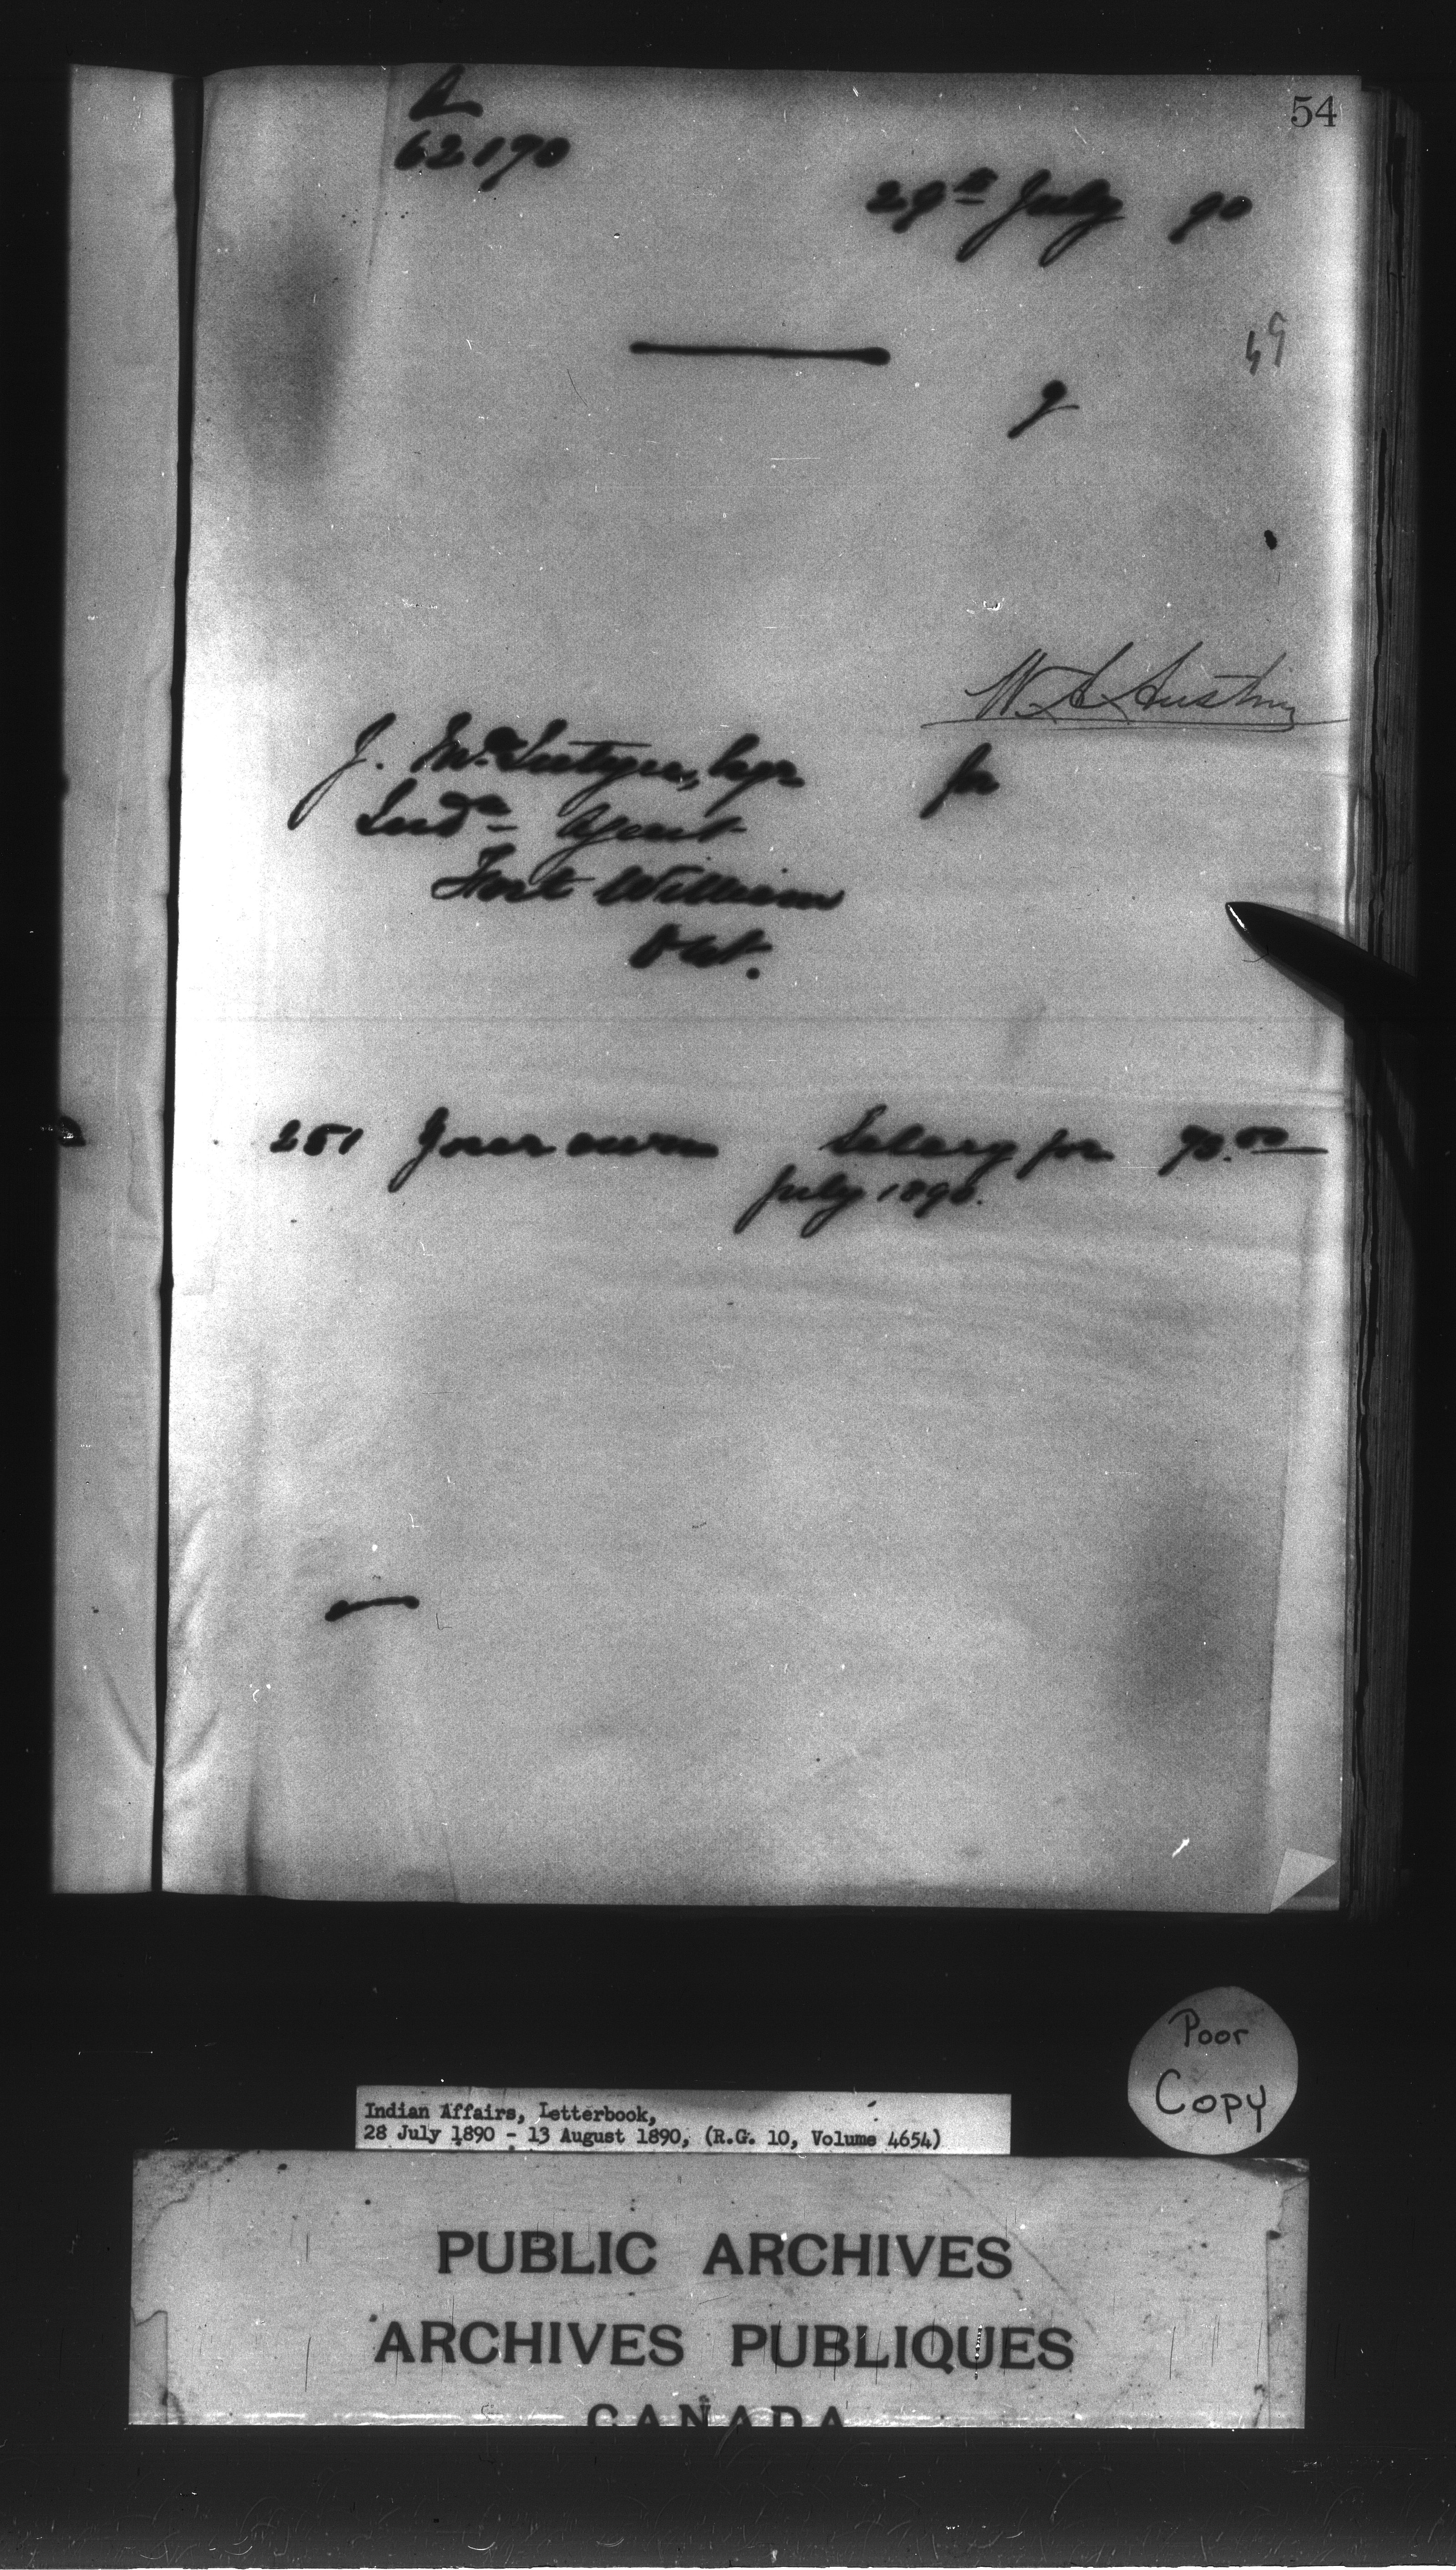 54
A
62190
29th July 90
49
W A Austin
J. McIntyre, Esqr
for
Indn Agent
Fort William
Ont.
251 Your own Salary for 70.00
July 1890.
Poor
Copy
Indian Affairs, Letterbook,
28 July 1890 - 13 August 1890, (R.G. 10, Volume 4654)
PUBLIC ARCHIVES
ARCHIVES PUBLIQUES
CANADA